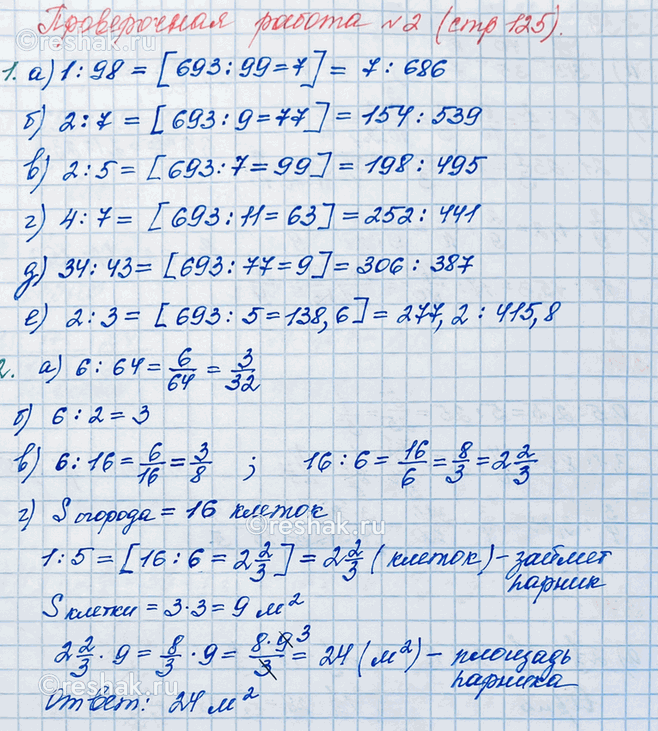 Проверочная работа №2 (стр 125).
1. а) 1 : 98 = [693 : 99 = 7] = 7 : 686
б) 2 : 7 = [693 : 9 = 77] = 154 : 539
в) 2 : 5 = [693 : 7 = 99] = 198 : 495
г) 4 : 7 = [693 : 11 = 63] = 252 : 441
д) 34 : 43 = [693 : 77 = 9] = 306 : 387
е) 2 : 3 = [693 : 5 = 138,6] = 277,2 : 415,8
2. а) 6 : 64 = 6/64 = 3/32
б) 6 : 2 = 3
в) 6 : 16 = 6/16 = 3/8 ; 16 : 6 = 16/6 = 8/3 = 2 2/3
г) S огорода = 16 клеток
©reshak.ru
1 : 5 = [16 : 6 = 2 2/3] = 2 2/3 (клеток) – займет парник
S клетки = 3 · 3 = 9 м²
2 2/3 · 9 = 8/3 · 9 = 8 · 9 3/3 = 24 (м²) – площадь парника
©reshak.ru
Ответ: 24 м²